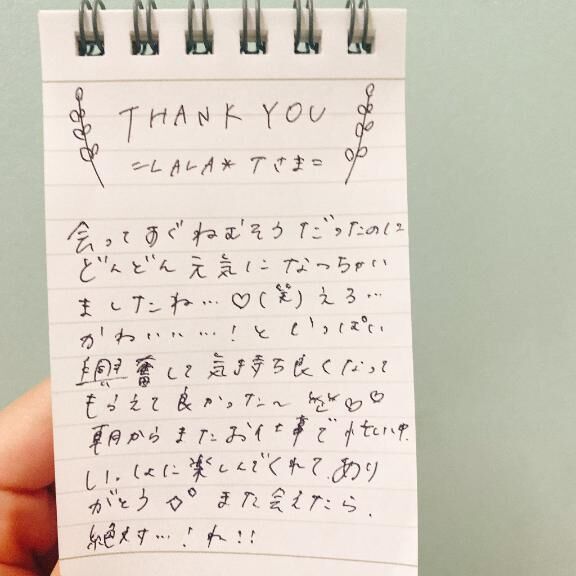 THANK YOU
=LALA* Tさま=
会ってすぐねむそうだったのに
どんどん元気になっちゃい
ましたね…♡(笑)えろ…
かわいい…!といっぱい
興奮して気持ち良くなって
もらえて良かった〜♡♡
朝からまたお仕事で忙しい中
いっしょに楽しんでくれて、あり
がとう また会えたら、
絶対す…!ね!!